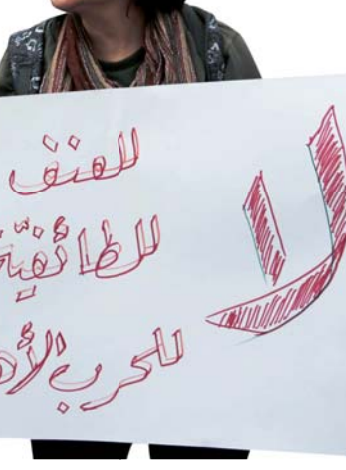 لا
للعنف
للطائفيّة
للحرب الأه